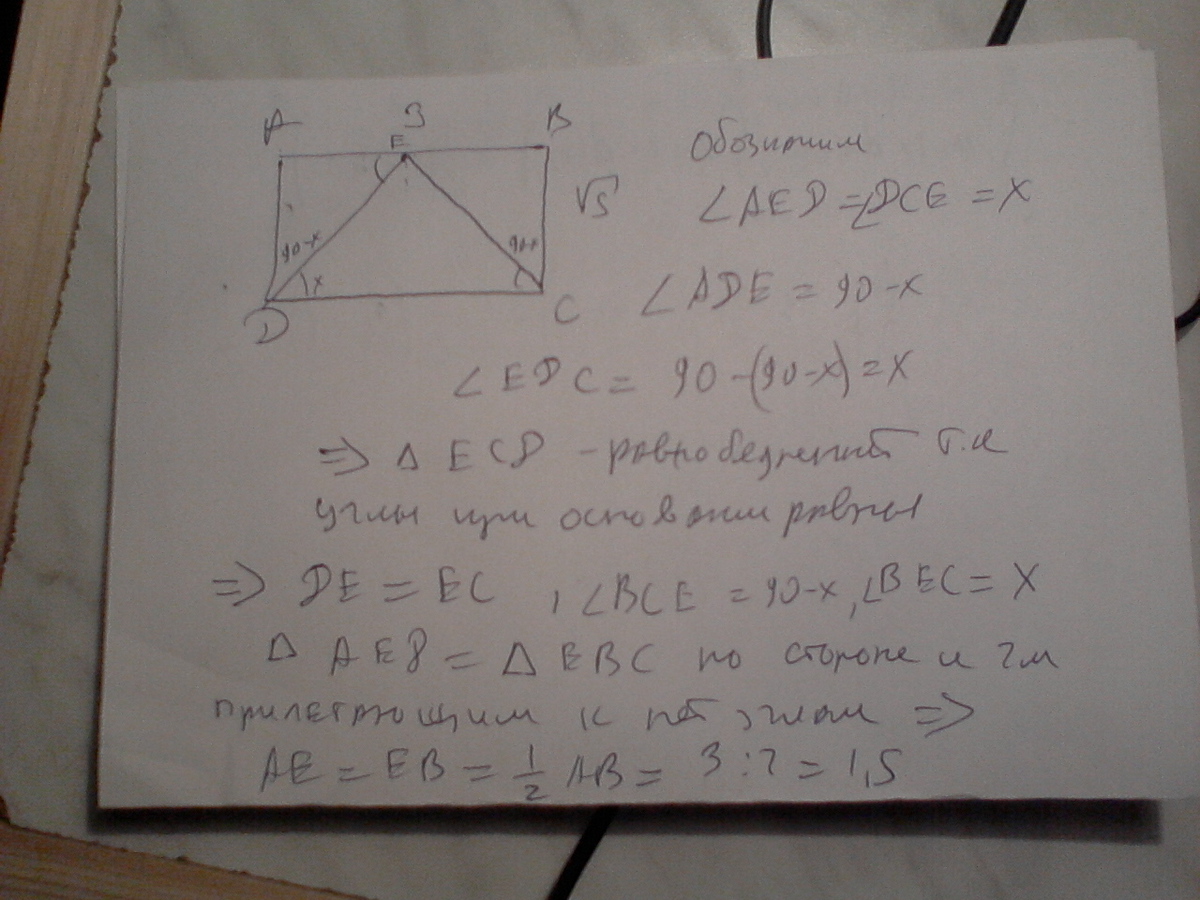 A 3 B
E
√5
90-x
90-x
x
D
C
Обозначим
∠AED = ∠DCE = x
∠ADE = 90-x
∠EDC = 90-(90-x)=x
⇒ Δ ECD - равнобедренный т.к
углы при основании равны
⇒ DE = EC , ∠BCE = 90-x, ∠BEC = x
Δ AED = Δ EBC по стороне и 2м
прилегающим к ней углам ⇒
AE = EB = 1/2 AB = 3:2 = 1,5